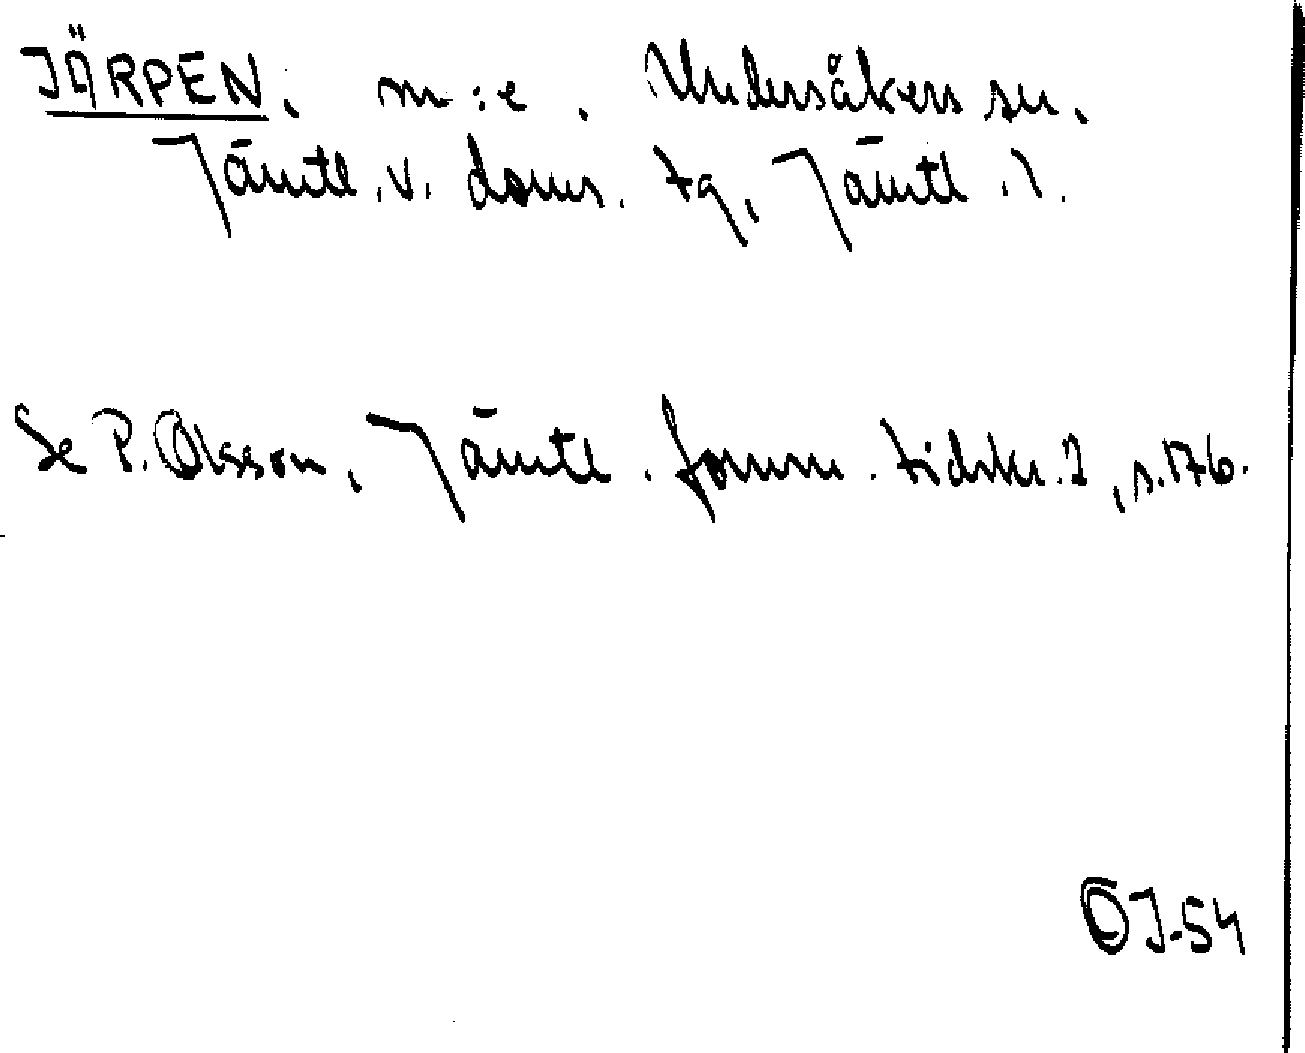 JÄRPEN, m:e. Undersåkers sn,
Jämtl. v. doms. tg, Jämtl. l.
Se P. Olsson, Jämtl. fornm. tidskr. 2, s. 176.
J-54